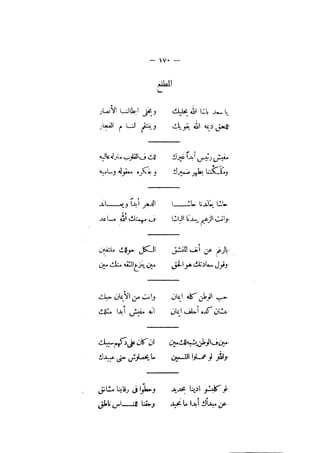 — ١٧٠ —
المطلع
يا سعد باشا الله يخليك ويخلي ابطالنا الأبرار
للحق ديه الله يقويك وينتقم لنا م الفجار
مفيش رئيس أبداً غيرك لك ف القلوب منزله عاليه
وملكتنا بطهر ضميرك و بفكره معقوله وساميه
حاشا يعاندنا حاشا الدهر أبداً ويساند
وانت الزعيم يا باشا ف مهمتك الله ساعد
بالرغم عن أنف المنشق الكل حولك ملتفين
وقول سعادتك هو الحق مين ينزع الثقه منك مين
حب الوطن كله إيمان وانت من الأيمان حبك
علشان كده أحلف إيمان انه مفيش أبدا مثلك
مين ف الوطن يشبهلك مين ان كان على ذكر سبيلك
والله لو عملوا اللـ مين ما يحصلوش حتى عبيدك
لو كلبشو ادينا بحديد وحطوا في رقابنا مشانق
عن مبدأك أبدا ما نحيد وحقنا للناس ناطق